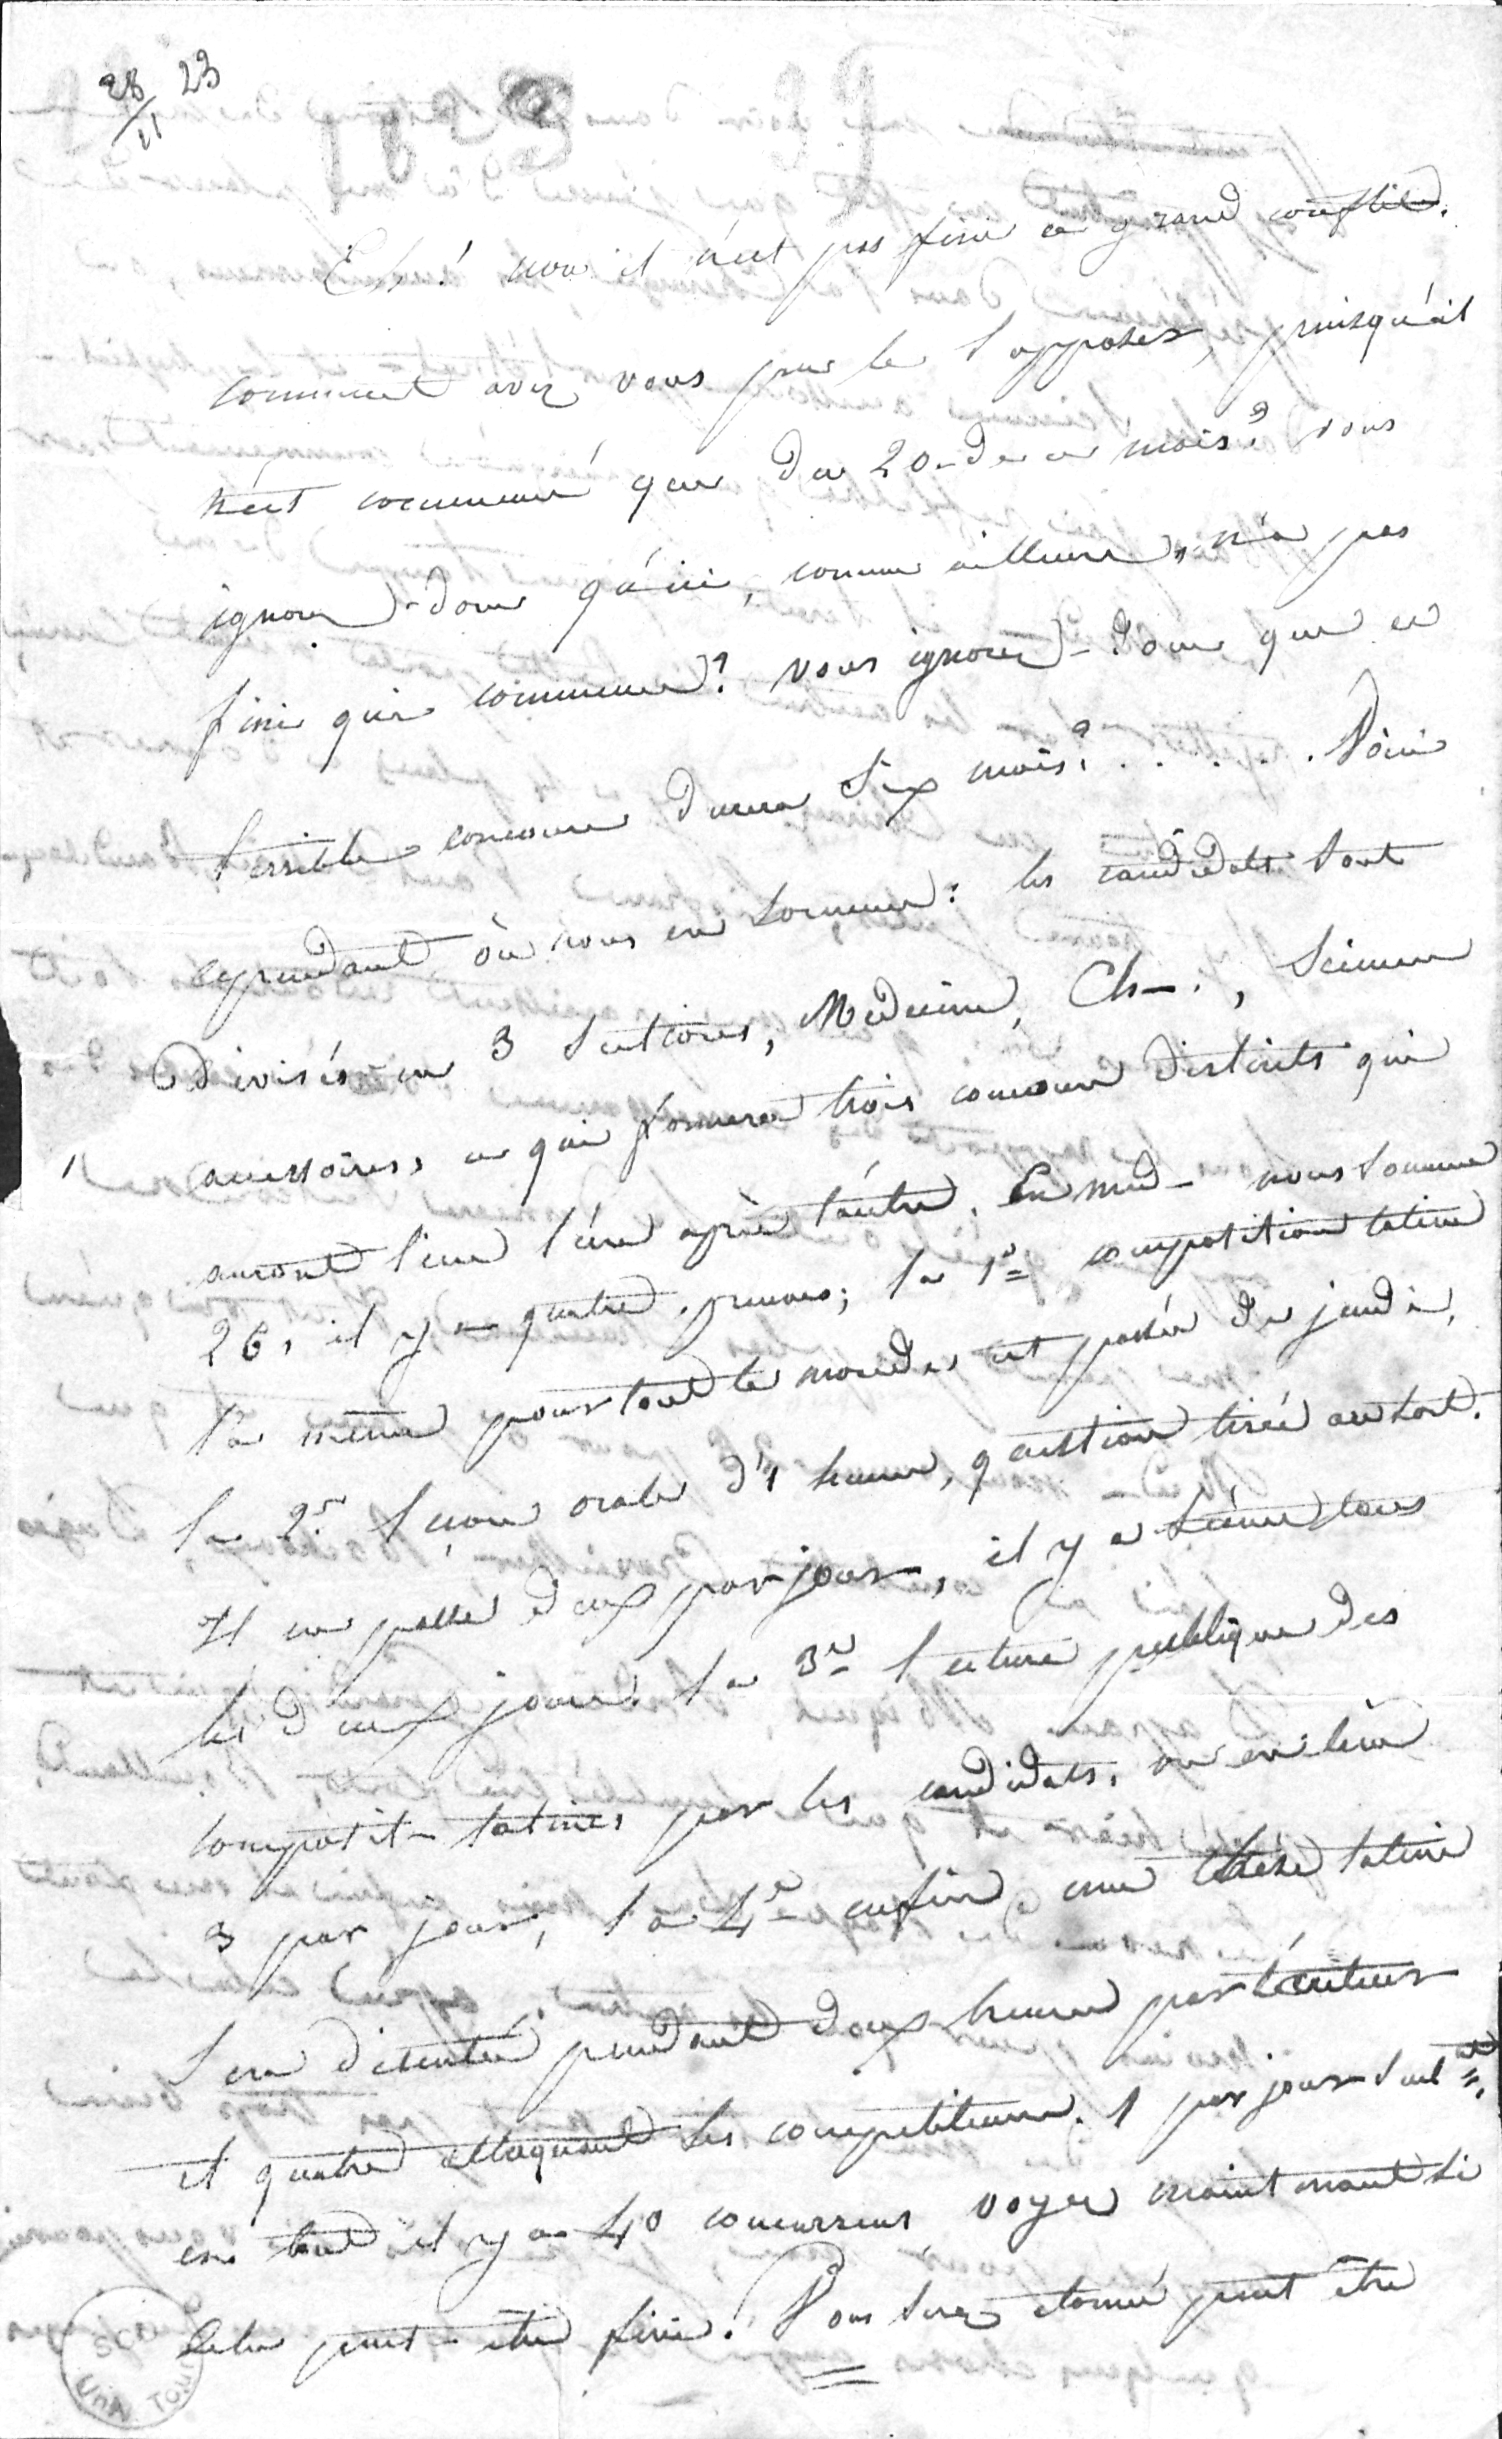 28/11 23
Eh! non il n'est pas fini ce grand conflit.
comment avez vous pu le supposer, puisqu'il
n'est commencé que du 20 de ce mois? vous
ignorez donc qu'ici, comme ailleurs, n'a pas
fini qui commence? vous ignorez donc que ce
terrible concours durera six mois? . . . . . Voici
cependant où nous en sommes: les candidats sont
divisés en 3 sections, Médecine, Ch—., Sciences
accessoires, ce qui formera trois concours distincts qui
auront lieu l'un après l'autre. En med— nous sommes
26, il y a quatre preuves; la 1e composition latine
la même pour tout le monde, est passée de jeudi,
la 2e leçon orale d'1 heure, question tirée au sort.
Il en passe deux par jour, il y a séance tous
les deux jours. la 3e lecture publique des
composit— latines par les candidats, on en lira
3 par jour, la 4e enfin une thèse latine
sera discutée pendant deux heures par l'auteur
et quatre attaquant ses compétiteurs. 1 par jour seulnt.
en tout il y a 40 concurrens voyez maintenant si
cela peut-être fini! Vous serez étonné peut être
SCD
Univ TOU